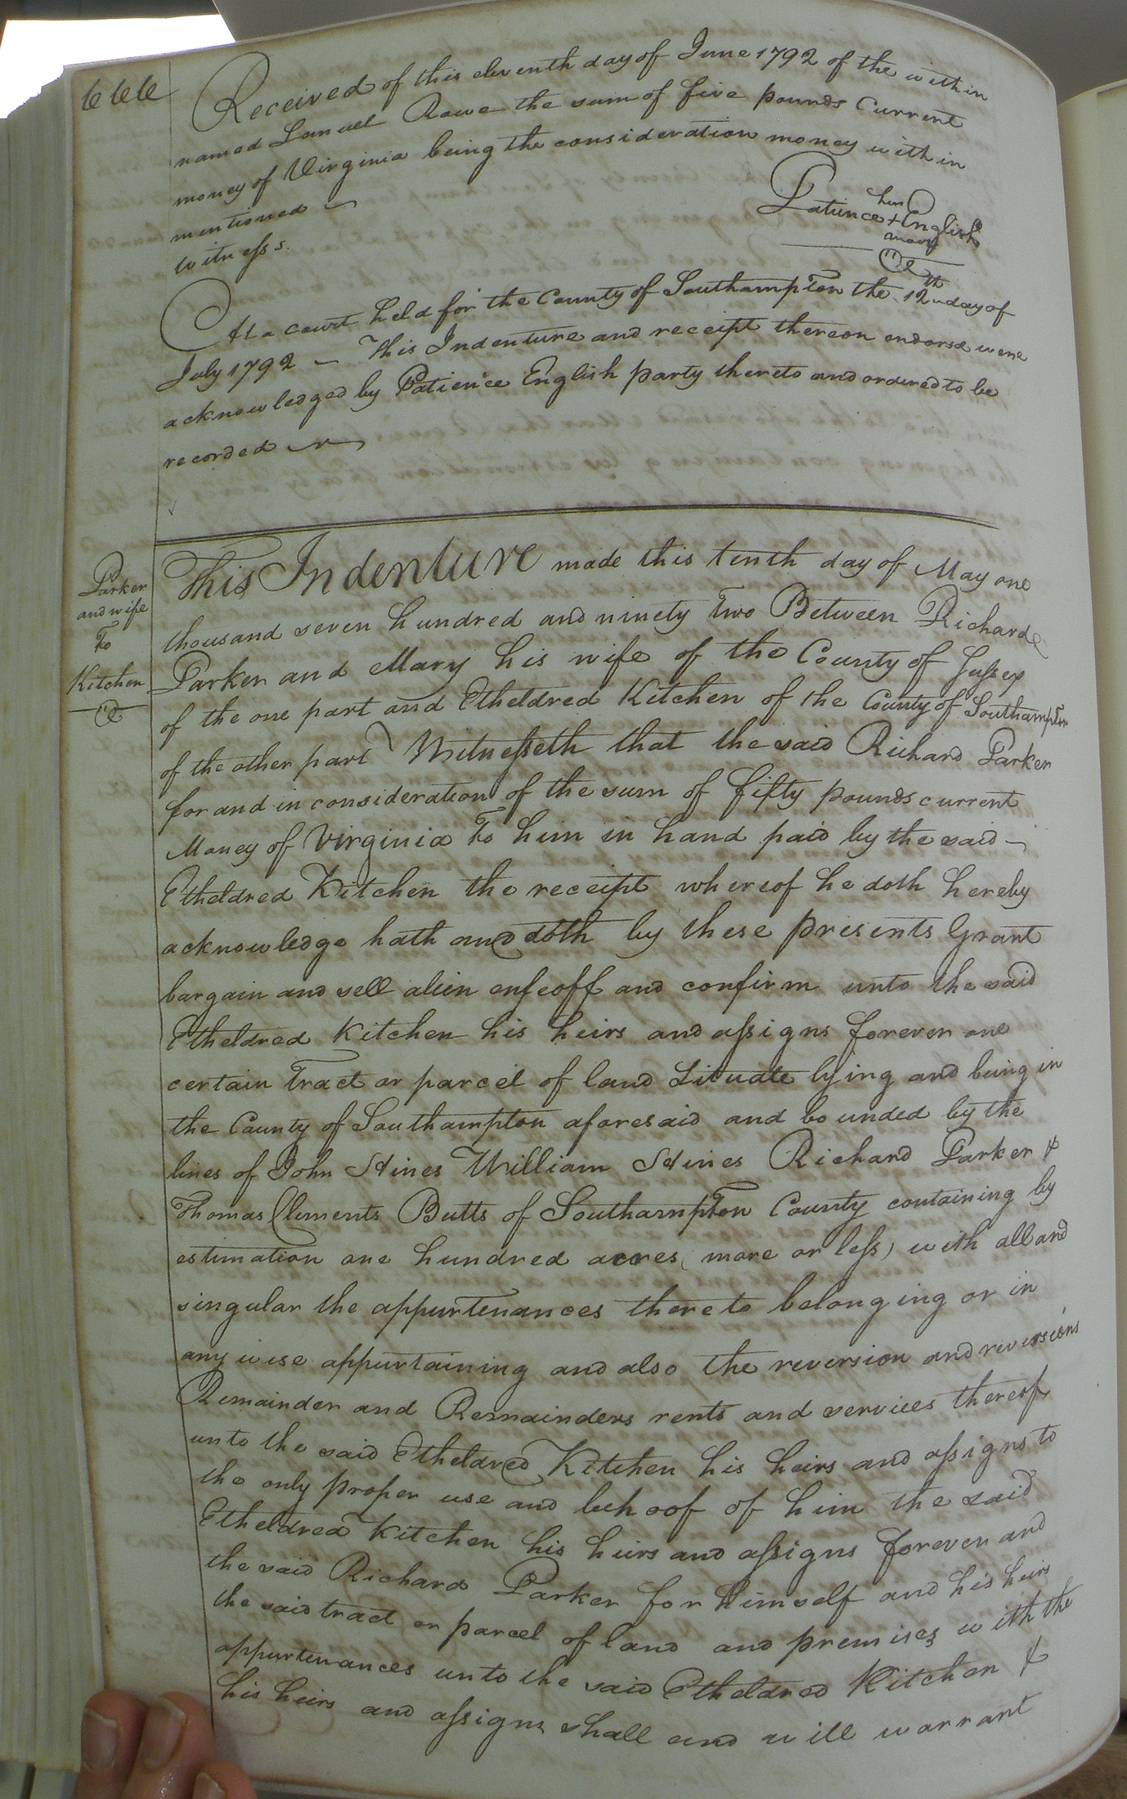 666
Received of this eleventh day of June 1792 of the within
named Samuel Rowe the sum of five pounds Current
money of Virginia being the consideration money within
mentioned
Witness.
her
Patience + English
mark
At a court held for the County of Southampton the 12th day of
July 1792 — This Indenture and receipt thereon endorsd were
acknowledged by Patience English party thereto and ordered to be
recorded
Parker
and wife
To
Kitchen
This Indenture made this tenth day of May one
thousand seven hundred and ninety Two Between Richard
Parker and Mary his wife of the County of Sussex
of the one part and Etheldred Kitchen of the County of Southampton
of the other part Witnesseth that the said Richard Parker
for and in consideration of the sum of fifty pounds current
Money of Virginia To him in hand paid by the said —
Etheldred Kitchen the receipt whereof he doth hereby
acknowledge hath and doth by these presents Grant
bargain and sell alien enfeoff and confirm unto the said
Etheldred Kitchen his heirs and assigns forever one
certain Tract or parcel of land Situate lying and being in
the County of Southampton aforesaid and bounded by the
lines of John Hines William Hines Richard Parker &
Thomas Clements Butts of Southampton County containing by
estimation one hundred acres, more or less, with all and
singular the appurtenances thereto belonging or in
any wise appurtaining and also the reversion and reversions
Remainder and Remainders rents and services thereof
unto the said Etheldred Kitchen his heirs and assigns to
the only proper use and behoof of him the said
Etheldred Kitchen his heirs and assigns forever and
the said Richard Parker for himself and his heirs
the said tract or parcel of land and premises with the
appurtenances unto the said Etheldred Kitchen &
his heirs and assigns shall and will warrant